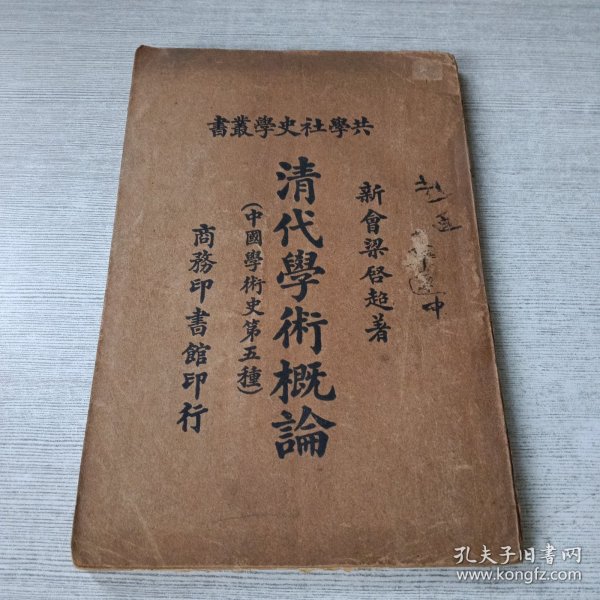 共學社史學叢書
新會梁啓超著
清代學術概論
(中國學術史第五種)
商務印書館印行
中
孔夫子旧书网
www.kongfz.com